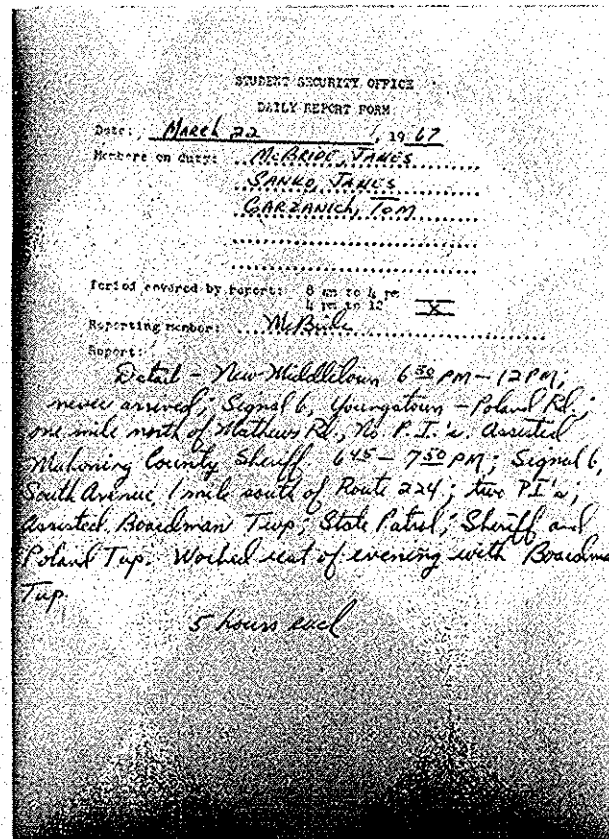 STUDENT SECURITY OFFICE
DAILY REPORT FORM
Date: March 22, 1967
Members on duty: McBride, James
Sanko, James
Garzanich, Tom
Period covered by report: 8 am to 4 pm
4 pm to 12 X
Reporting member: McBride
Report:
Detail - New Middletown 6 30 PM - 12 PM;
never arrived; Signal 6, Youngstown - Poland Rd.;
one mile north of Mathews Rd., No P.I.'s. Assisted
Mahoning County Sheriff. 6 45 - 7 50 PM; Signal 6,
South Avenue 1 mile south of Route 224; two PI's;
Assisted Boardman Twp; State Patrol; Sheriff and
Poland Twp. Worked rest of evening with Boardma
Twp.
5 hours each